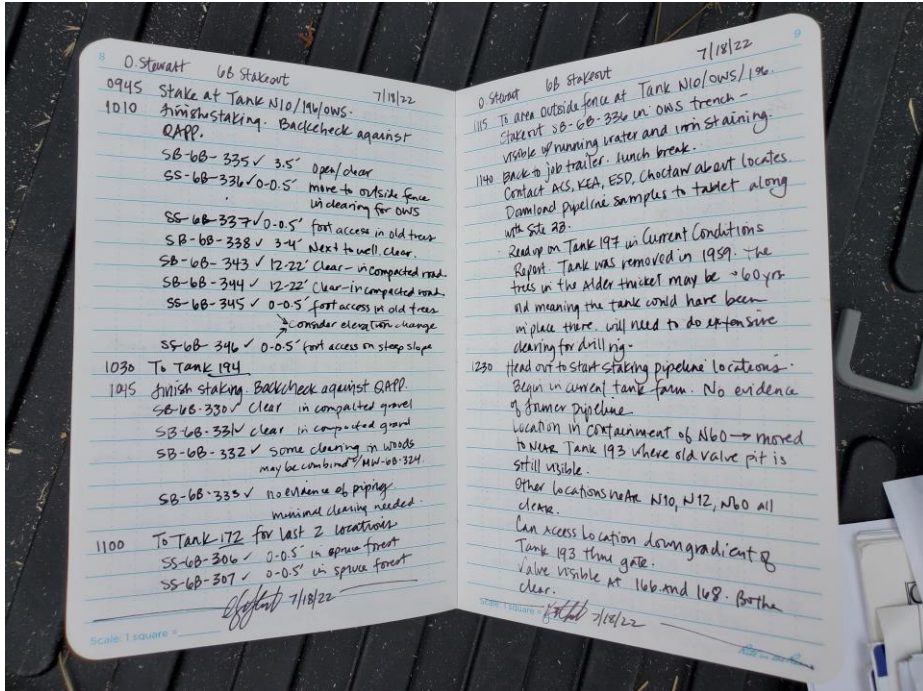 8
O. Stewart 6B Stakeout 7/18/22
0945 Stake at Tank N10/196/OWS.
1010 finish staking. Backcheck against
QAPP.
SB-6B-335 ✓ 3.5' open/clear
SS-6B-336 ✓ 0-0.5' move to outside fence
in clearing for OWS
SS-6B-337 ✓ 0-0.5' foot access in old trees
SB-6B-338 ✓ 3-4' Next to well. clear.
SB-6B-343 ✓ 12-22' Clear - in compacted road
SB-6B-344 ✓ 12-22' Clear - in compacted road
SS-6B-345 ✓ 0-0.5' foot access in old trees
→ consider elevation change
SS-6B-346 ✓ 0-0.5' foot access on steep slope
1030 To Tank 194
1045 finish staking. Backcheck against QAPP.
SB-6B-330 ✓ clear in compacted gravel
SB-6B-331 ✓ clear in compacted gravel
SB-6B-332 ✓ some clearing in woods
may be combined w/ MW-6B-324.
SB-6B-333 ✓ no evidence of piping
minimal clearing needed.
1100 To Tank 172 for last 2 locations
SS-6B-306 ✓ 0-0.5' in spruce forest
SS-6B-307 ✓ 0-0.5' in spruce forest
7/18/22
Scale: 1 square =
9
O. Stewart 6B Stakeout 7/18/22
1115 To area outside fence at Tank N10/OWS/196.
Stakeout SB-6B-336 in OWS trench -
visible w/ running water and iron staining.
1140 Back to job trailer. lunch break.
Contact ACS, KEA, ESD, Choctaw about locates.
Download pipeline samples to tablet along
with Site 23.
· Read up on Tank 197 in Current Conditions
Report. Tank was removed in 1959. The
trees in the Alder thicket may be ~60 yrs
old meaning the tank could have been
in place there. will need to do extensive
clearing for drill rig.
1230 Head out to start staking pipeline locations.
Begin in current tank farm. No evidence
of former pipeline
Location in containment of N60 → moved
to near Tank 193 where old valve pit is
still visible.
Other locations near N10, N12, N60 all
clear.
Can access location downgradient of
Tank 193 thru gate.
Valve visible at 166 and 168. Both
clear.
Scale: 1 square = 7/18/22
Rite in the Rain